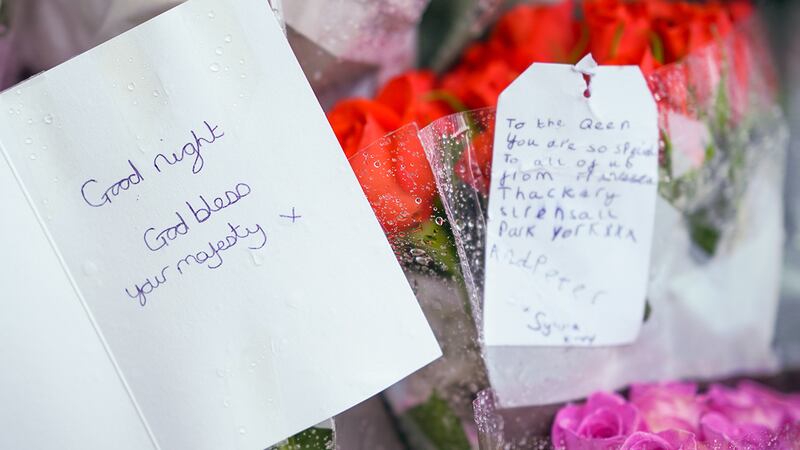 Good night
God bless
your majesty x
To the Qeen
You are so special
To all of us
from
Thackery
strensall
Park york xxx
And Peter
Sylvia